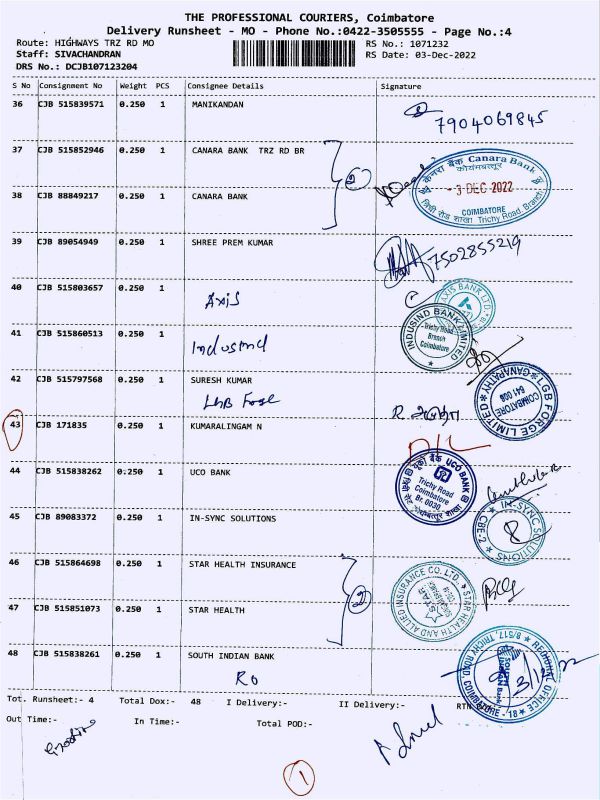 THE PROFESSIONAL COURIERS, Coimbatore
Delivery Runsheet - MO - Phone No.:0422-3505555 - Page No.:4
Route: HIGHWAYS TRZ RD MO RS No.: 1071232
Staff: SIVACHANDRAN RS Date: 03-Dec-2022
DRS No.: DCJB107123204
S No Consignment No Weight PCS Consignee Details Signature
36 CJB 515839571 0.250 1 MANIKANDAN
7904069845
37 CJB 515852946 0.250 1 CANARA BANK TRZ RD BR
केनरा बैंक Canara Bank
कोयम्बत्तूर
- 3 DEC 2022
COIMBATORE
Trichy Road Branch
38 CJB 88849217 0.250 1 CANARA BANK
39 CJB 89054949 0.250 1 SHREE PREM KUMAR
7502855219
40 CJB 515803657 0.250 1
Axis
AXIS BANK LTD.
41 CJB 515860513 0.250 1
Indusind
INDUSIND BANK LIMITED
Trichy Road
Branch
Coimbatore
42 CJB 515797568 0.250 1 SURESH KUMAR
LGB Forge
LGB FORGE LIMITED
GANAPATHY
COIMBATORE
641 006
43 CJB 171835 0.250 1 KUMARALINGAM N
D/L
44 CJB 515838262 0.250 1 UCO BANK
यूको बैंक UCO BANK
Trichy Road
Coimbatore
Br. 0030
45 CJB 89083372 0.250 1 IN-SYNC SOLUTIONS
IN-SYNC SOLUTIONS
CBE-2
46 CJB 515864698 0.250 1 STAR HEALTH INSURANCE
2
STAR HEALTH AND ALLIED INSURANCE CO. LTD.
STAR
47 CJB 515851073 0.250 1 STAR HEALTH
48 CJB 515838261 0.250 1 SOUTH INDIAN BANK
RO
REGIONAL OFFICE
8/517, TRICHY ROAD, COIMBATORE - 18
SOUTH INDIAN Bank
3/12/22
Tot. Runsheet:- 4 Total Dox:- 48 I Delivery:- II Delivery:- RTN
Out Time:- In Time:- Total POD:-
1